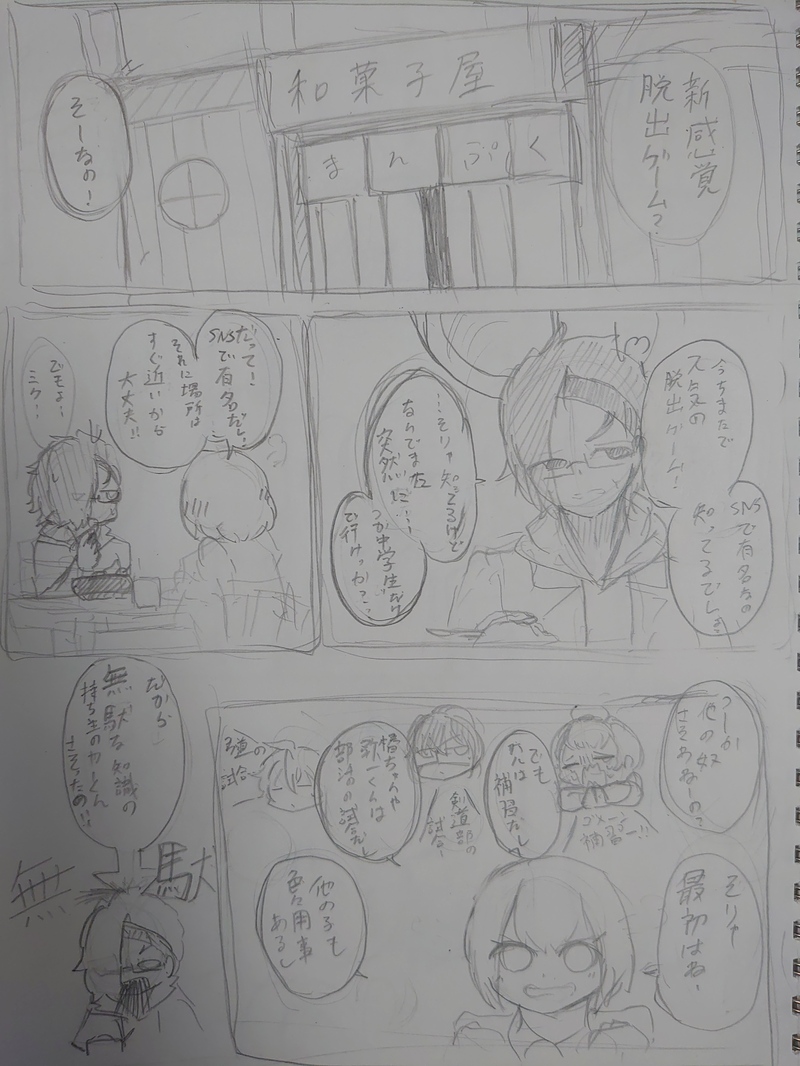 新感覚
脱出ゲーム?
和菓子屋
まんぷく
そーなの!
今ちまたで
人気の
脱出ゲーム!
SNSで有名なの
知ってるでしょ
…そりゃ知ってるけど
なんでまた
突然に…
つか中学生だけ
で行けっか?…
だって!
SNSで有名だし
それに場所は
すぐ近いから
大丈夫!!
でもよ…
ミク…
つーか
他の奴
さそわねーの?
そりゃ
最初はね
でも
れんは
補習だし
ゴメーン
補習ー!!
橘ちゃんや
一くんは
部活の試合だし
剣道部の
試合
弓道の
試合
他の子も
色々用事
あるし
だから
無駄な知識の
持ち主の
さそったの!!
無駄